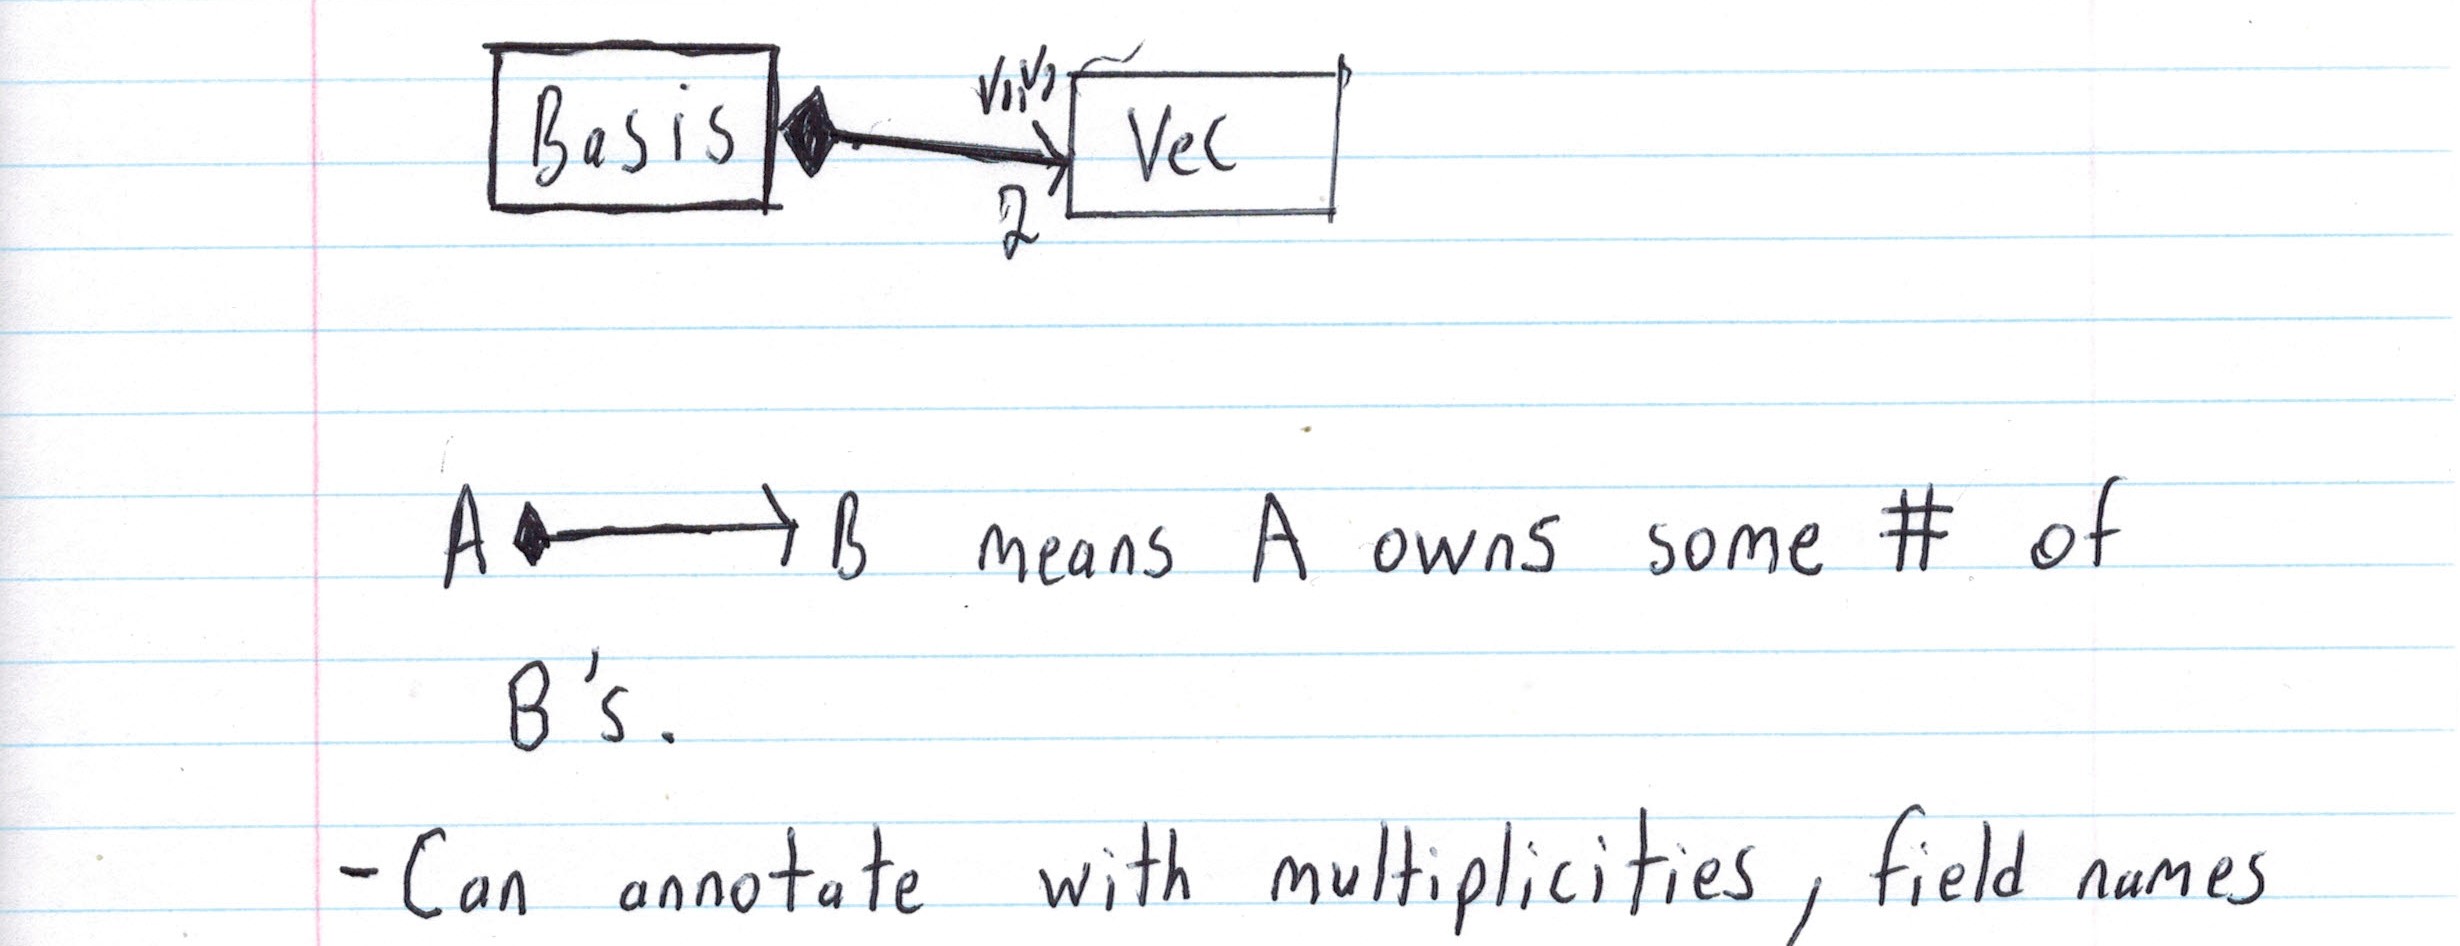 Basis
Vec
2
A B means A owns some # of
B's.
- Can annotate with multiplicities, field names